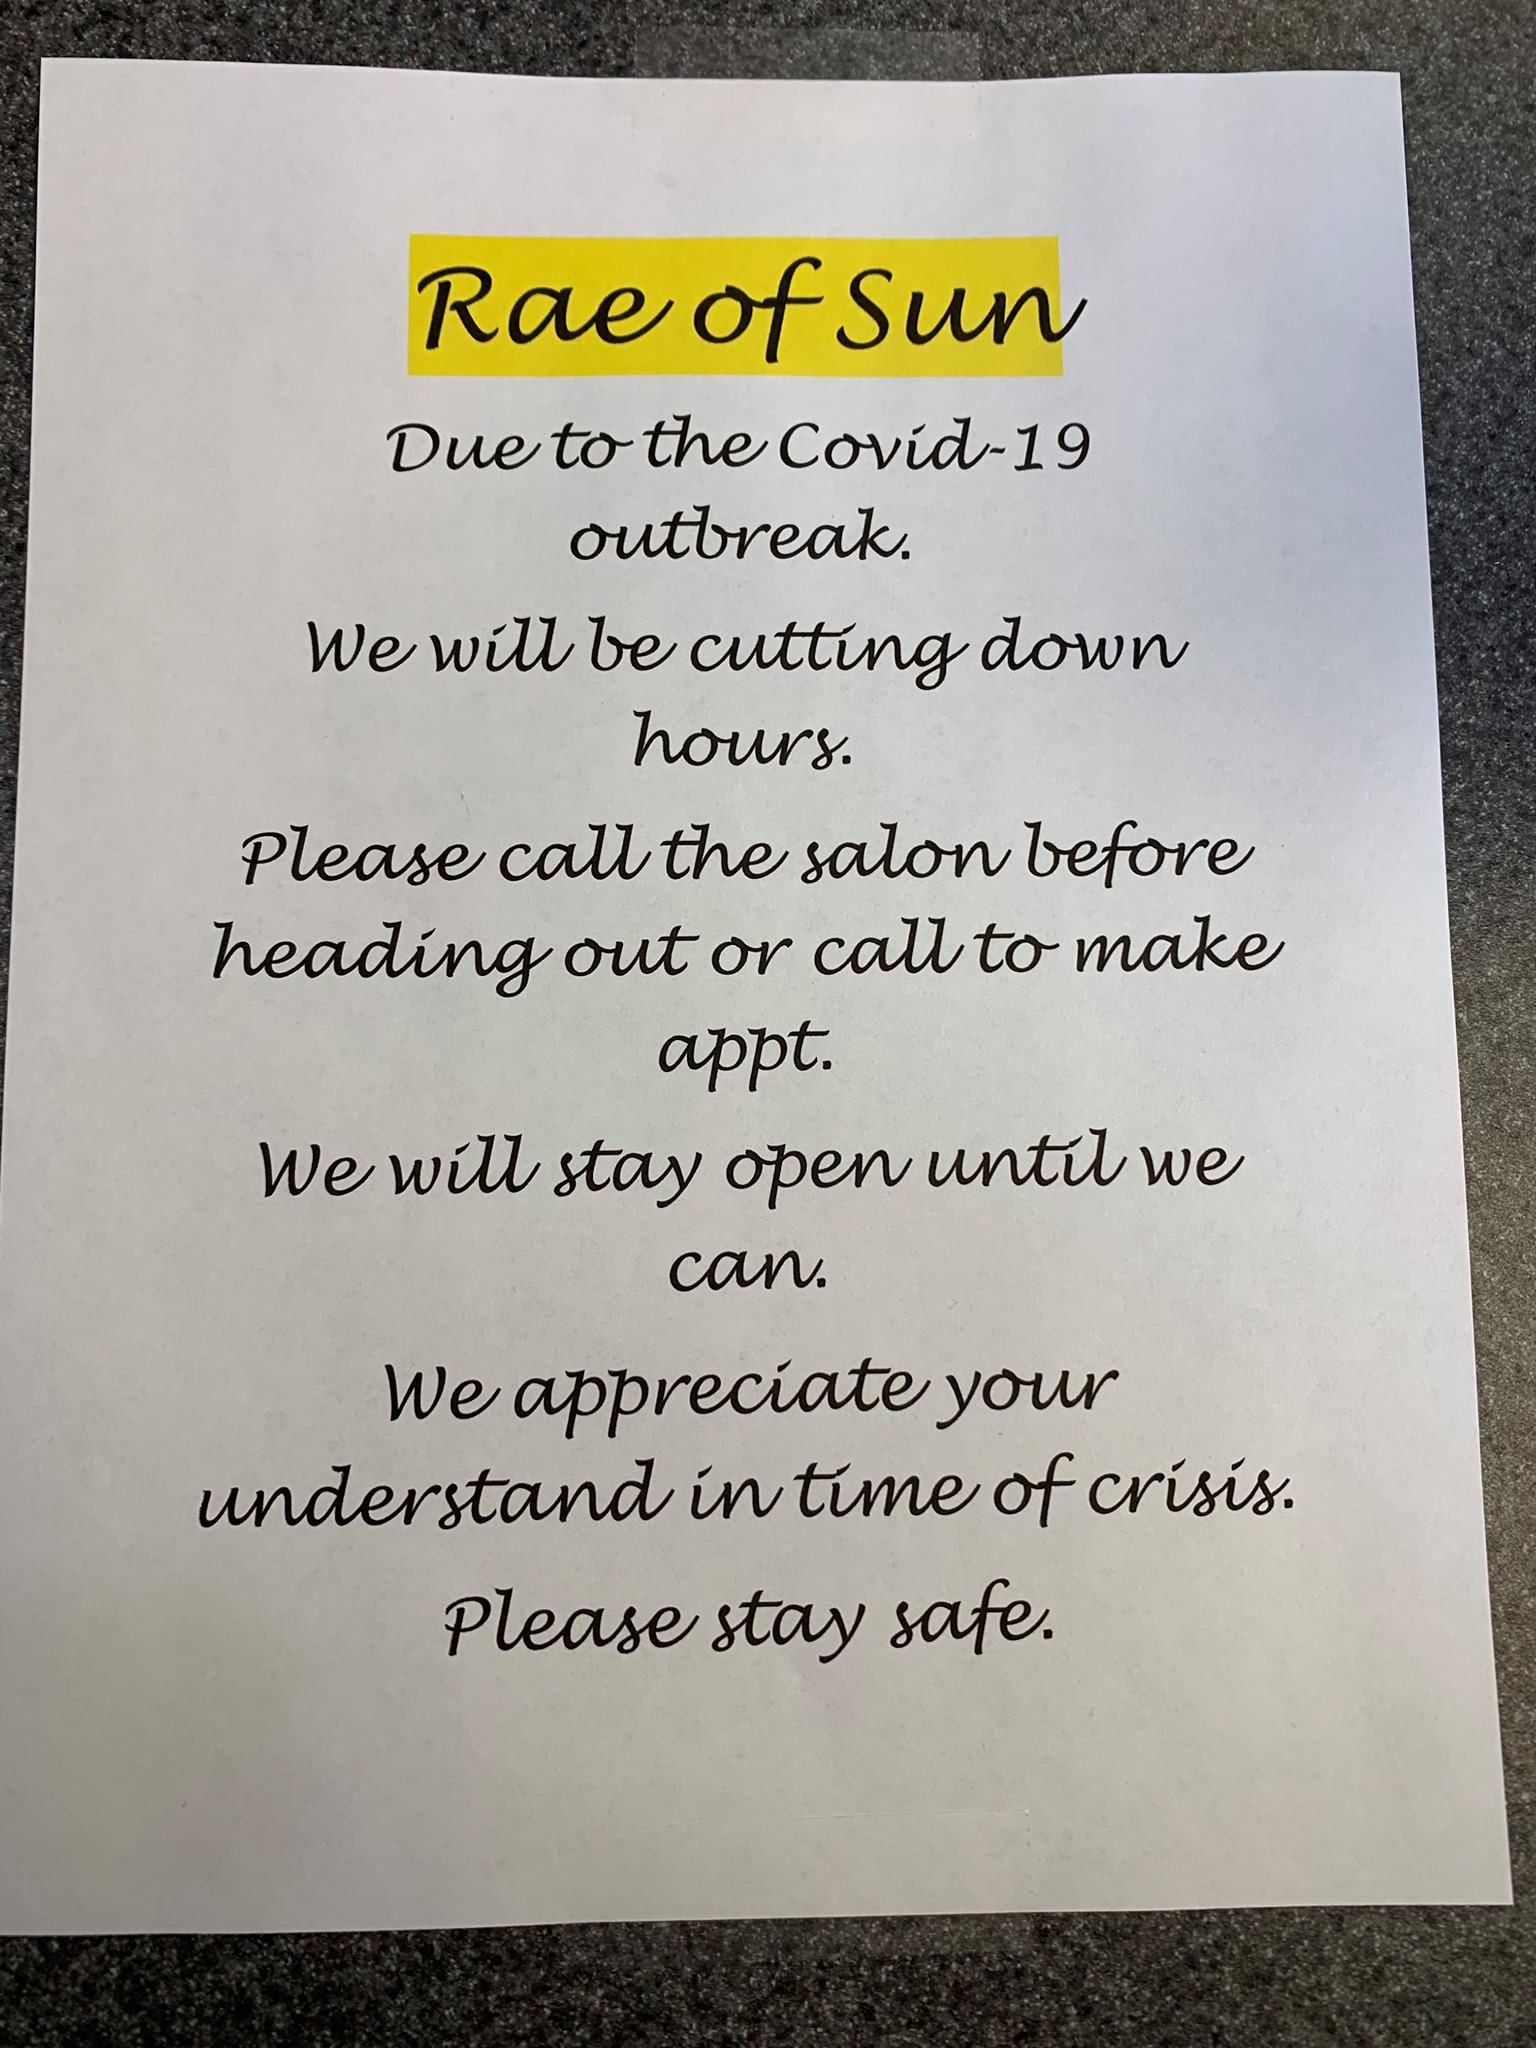 Rae of Sun
Due to the Covid-19
outbreak.
We will be cutting down
hours.
Please call the salon before
heading out or call to make
appt.
We will stay open until we
can.
We appreciate your
understand in time of crisis.
Please stay safe.